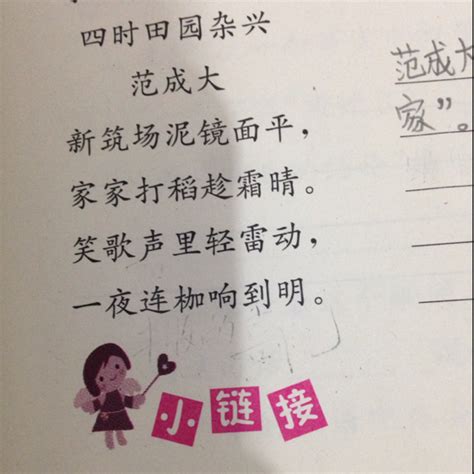 四时田园杂兴
范成大
新筑场泥镜面平，
家家打稻趁霜晴。
笑歌声里轻雷动，
一夜连枷响到明。
范成大
家”。
小链接